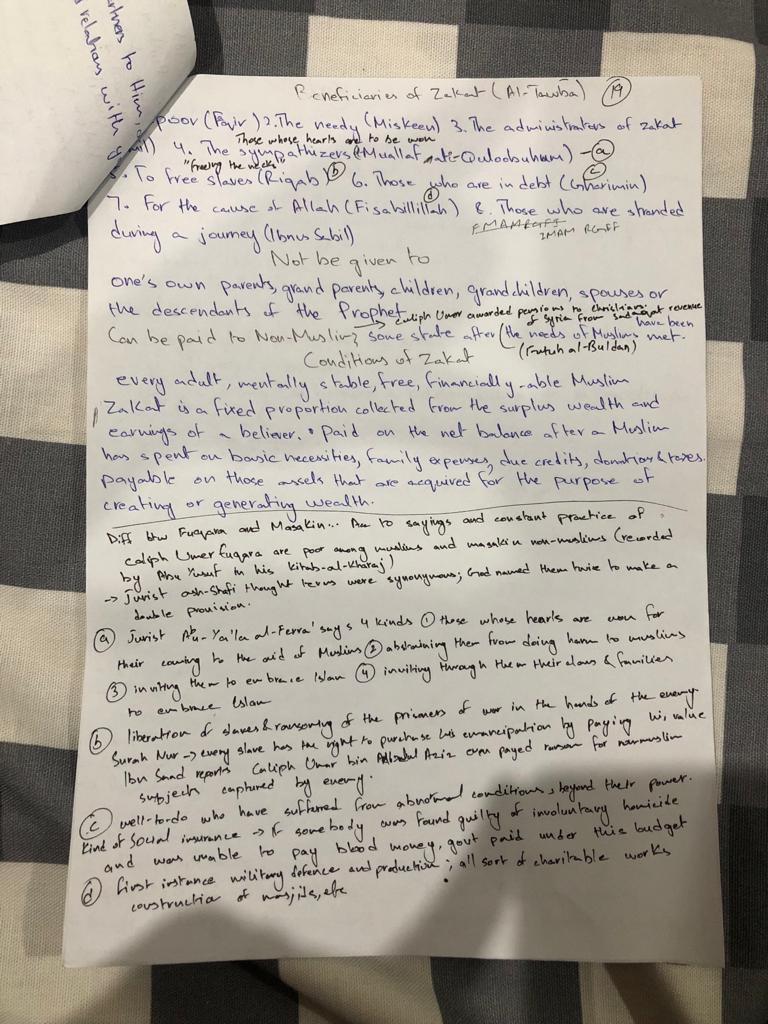 rtners to Him,
relations with y
Beneficiaries of Zakat (Al-Tawba) 19
poor (Faqir) 2. The needy (Miskeen) 3. The administrators of zakat
Those whose hearts are to be won
4. The sympathizers (Muallafati-Quloobuhum) - a
"freeing the necks"
To free slaves (Riqab) b 6. Those who are in debt (Gharimin) c
7. For the cause of Allah (Fisabilillah) d 8. Those who are stranded
during a journey (Ibnus Sabil)
IMAM RGFF
Not be given to
one's own parents, grand parents, children, grandchildren, spouses or
the descendants of the Prophet
→ Caliph Umer awarded pensions to christians of Syria from sadaqat revenue
Can be paid to Non-Muslim; some state after the needs of Muslims have been met.
(Futuh al-Buldan)
Conditions of Zakat
every adult, mentally stable, free, financially-able Muslim
Zakat is a fixed proportion collected from the surplus wealth and
earnings of a believer. • Paid on the net balance after a Muslim
has spent on basic necessities, family expenses, due credits, donations & taxes.
payable on those assets that are acquired for the purpose of
creating or generating wealth.
Diff btw Fuqara and Masakin... Acc to sayings and constant practice of
caliph Umer fuqara are poor among muslims and masakin non-muslims (recorded
by Abu Yusuf in his kitab-al-kharaj)
→ Jurist ash-Shafi thought terms were synonymous; God named them twice to make a
double provision.
a Jurist Abu-Ya'la al-Ferra' says 4 kinds ① those whose hearts are won for
their coming to the aid of Muslims ② abstaining them from doing harm to muslims
③ inviting them to embrace Islam ④ inviting through them their clans & families
to embrace Islam
b liberation of slaves & ransoming of the prisoners of war in the hands of the enemy.
Surah Nur → every slave has the right to purchase his emancipation by paying his value
Ibn Saad reports Caliph Umar bin Abdul Aziz even payed ransom for nonmuslim
subjects captured by enemy.
c well-to-do who have suffered from abnormal conditions, beyond their power.
Kind of Social insurance → If somebody was found guilty of involuntary homicide
and was unable to pay blood money, govt paid under this budget
d first instance military defence and production; all sort of charitable works
construction of masjids, etc